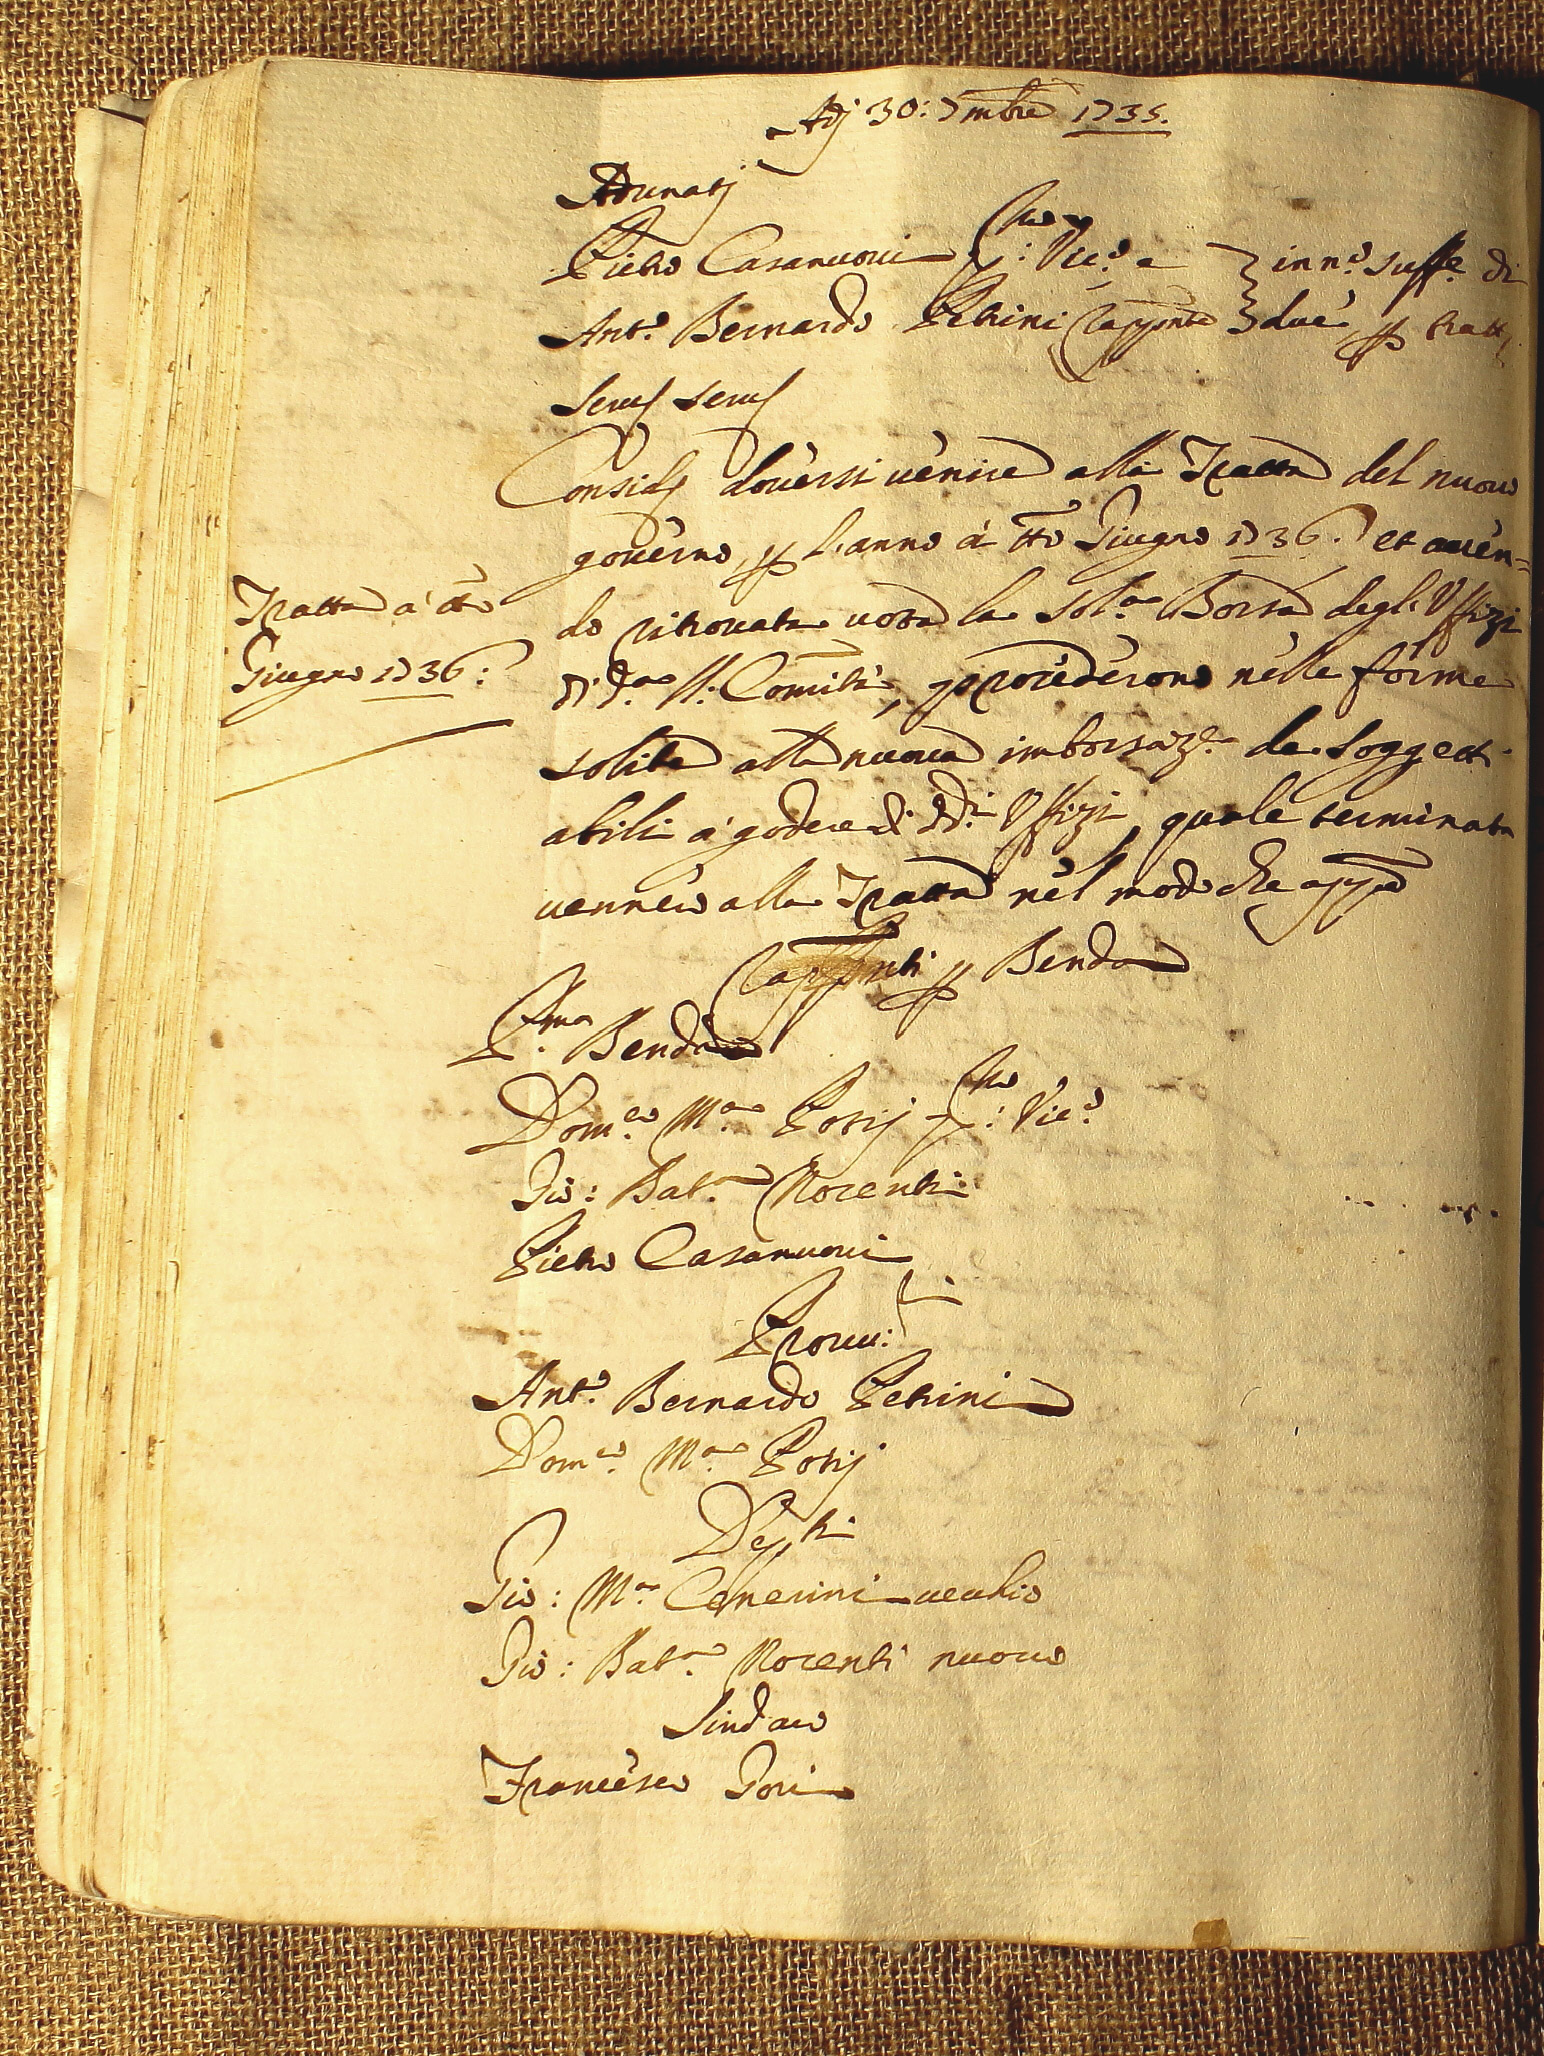 Adj 30: 7mbre 1735.
Adunatj
Pietro Casanuoui Pro: Vic.o e } inn.o suffe di
Ant.o Bernardo Petrini Rappnte } due p tratt.
Seruj Seruj
Considj douersi uenire alla Tratta del nuouo
gouerno, p l'anno à tto Giugno 1736. et auen=
do ritrouata uota la sol.a Borsa degl'Uffizi
di d.a Comità, procederono nelle forme
solite alla nuoua imborsaz.e de Soggetti
abili à godere di dd.i Uffizi, quale terminata
uennero alla Tratta nel modo che appe
Tratta à tto
Giugno 1736:
Rapp.nti p Benda
P.ma Benda
Dom.co M.a Posij Pro: Vic.o
Gio: Bat.a Nocenti
Pietro Casanuoui
Prouu:ri
Ant.o Bernardo Petrini
Dom.co M.a Posij
Dep.ti
Gio: M.a Cenerini uecchio
Gio: Bat.a Nocenti nuouo
Sindaco
Francesco Gori